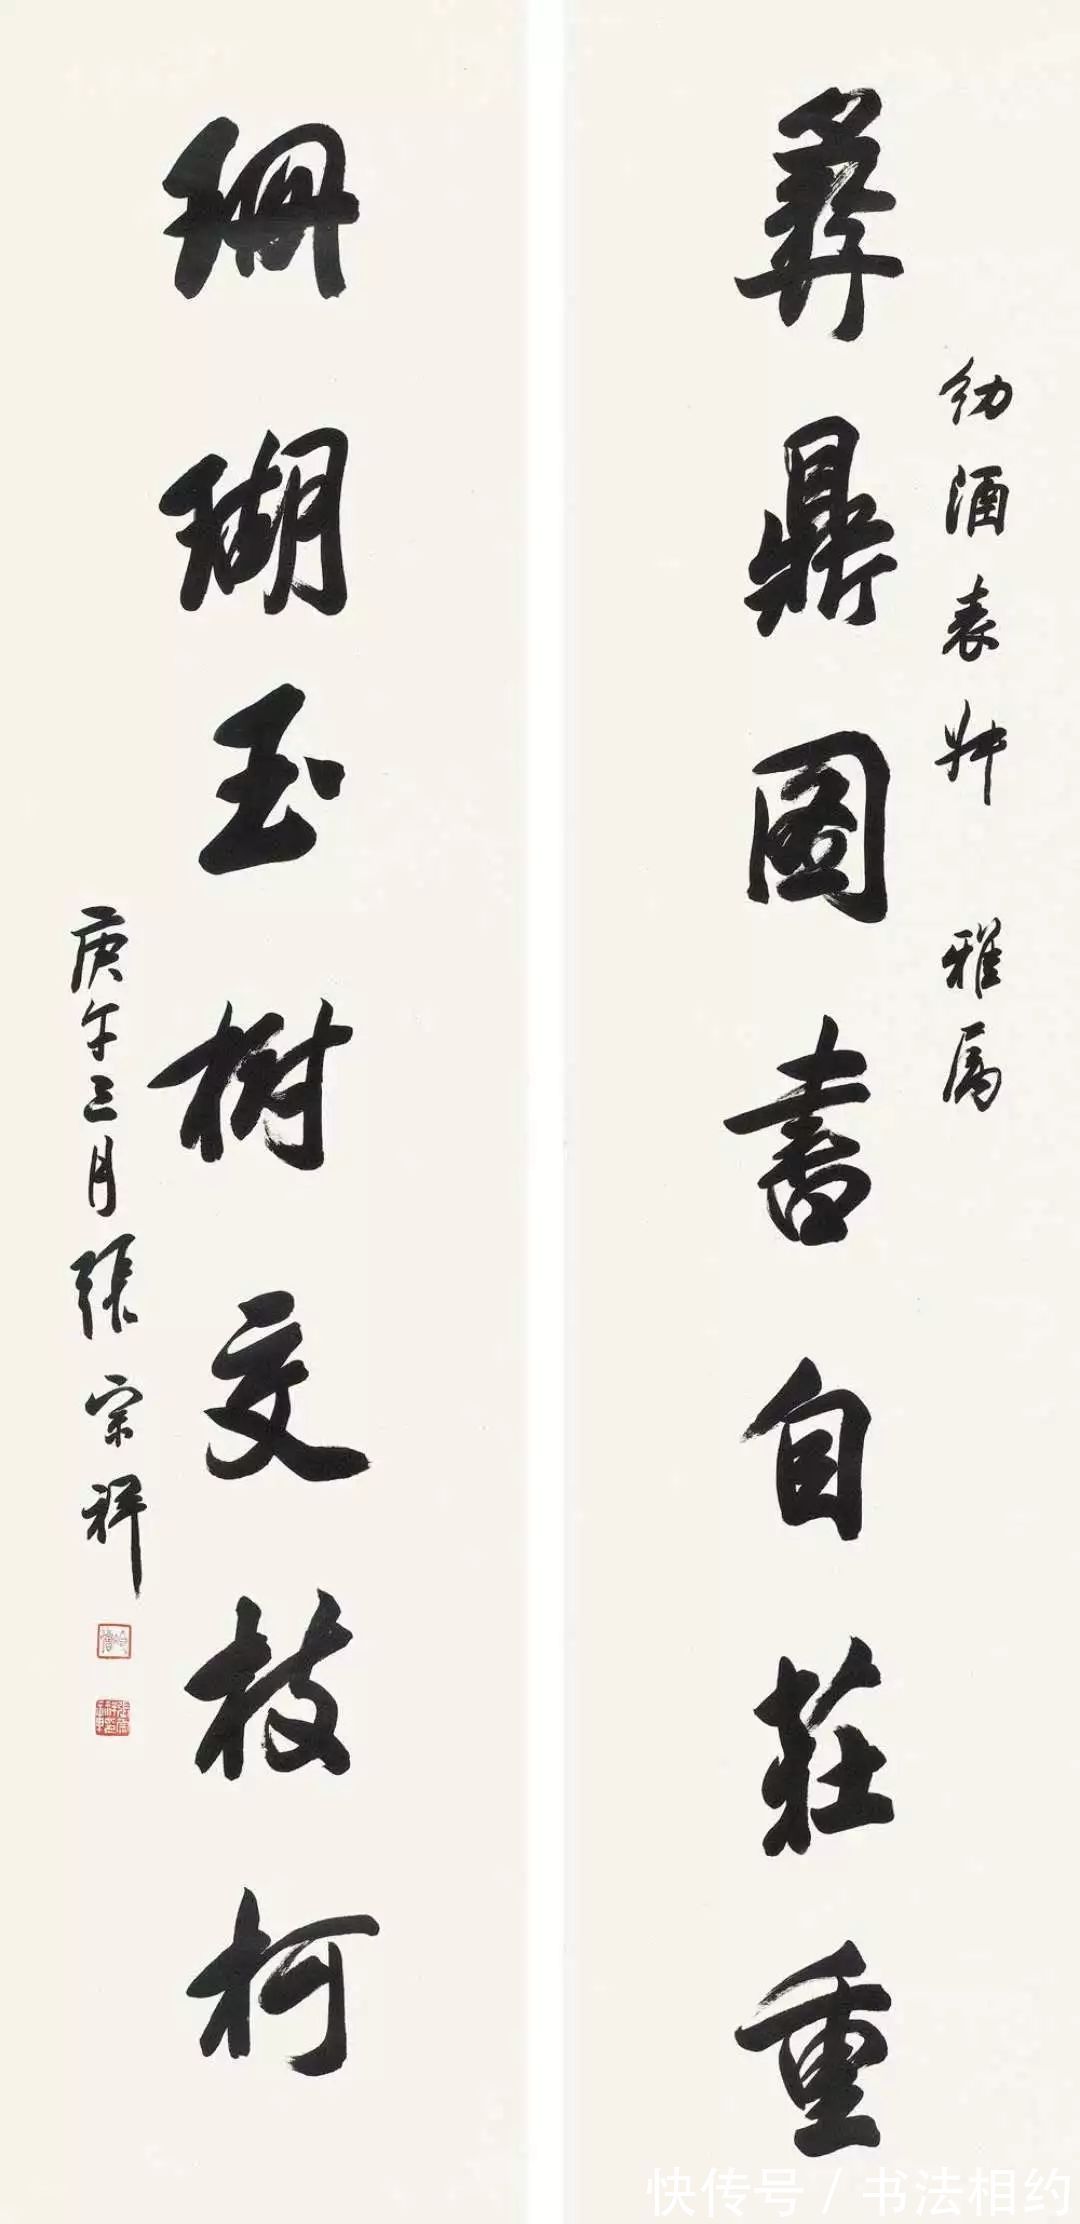 幼酒表叔 雅属
彝鼎图書自莊重
珊瑚玉樹交枝柯
庚午三月張宗祥
快传号 / 书法相约